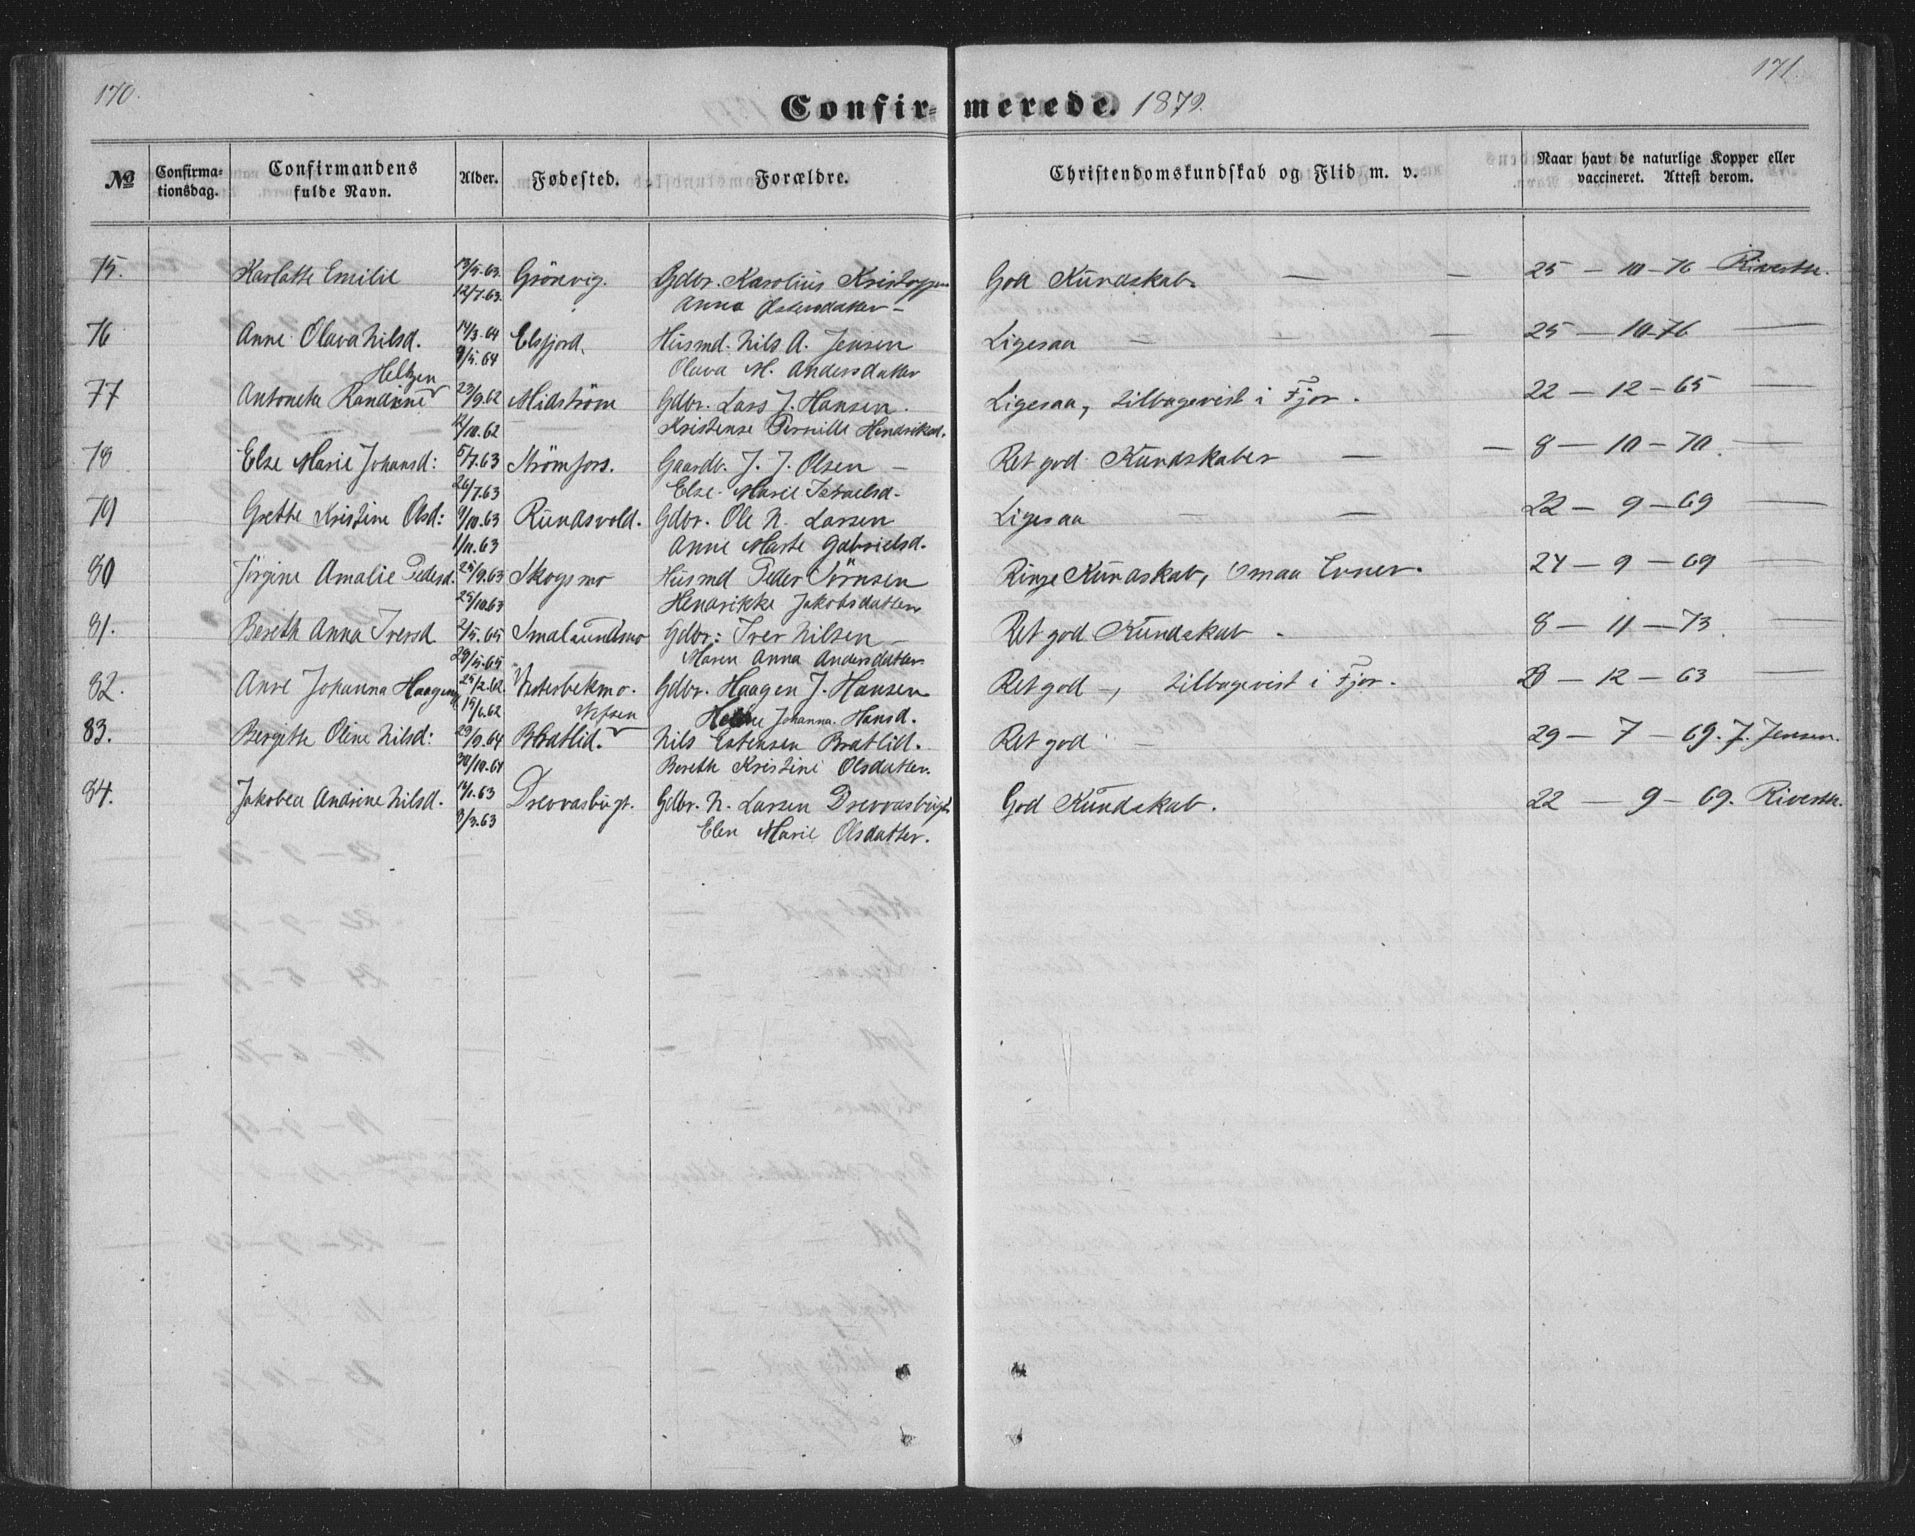 170.
171.
Confirmerede. 1879.
No
Confirmationsdag.
Confirmandens fulde Navn.
Alder.
Fødested.
Forældre.
Christendomskundskab og Flid m. v.
Naar havt de naturlige Kopper eller vaccineret. Attest derom.
75. Karlotte Emilie 13/5.63. Grönvig. Gdbr. Karolius Kristoffersen God Kundskab. — — 25 — 10 — 76 Rivertz.
12/7.63. Anna Pedersdatter —
76 Anne Olava Nilsd. 14/3.64 Elsfjord. Husmd. Nils A. Jensen Ligesaa — — — 25 — 10-76 —
9/5.64 Olava M. Andersdatter
Heltzen
77 Antoneta Randine 23/9.62 Midström Gdbr. Lars J. Hansen. Ligesaa, tilbagevist i Fjor. 22 — 12 — 65 —
12/10.62 — Kristense Pernille Hendriksd.
78 Else Marie Johansd: 5/7.63 Strömfors. Gaardb. J. J. Olsen — Ret god Kundskaber — — 8 — 10 — 70. —
26/7.63 Else Marie Israelsd.
79 Grethe Kristine Olsd: 9/10.63 Rundsvold. Gdbr. Ole N. Larsen Ligesaa — — 22 — 9 — 69 —
1/11.63 Anne Marte Gabrielsd.
80 Jörgine Amalie Pedersd. 25/9.63 Skogsmo Husmd Peder Sörnsen Ringe Kundskab, smaa Evner. 24 — 9 — 69 —
25/10.63 Hendrikke Jakobsdatter
81. Bereth Anna Iversd 2/5.65 Smalsundmo Gdbr: Iver Nilsen — Ret god Kundskab. 8 — 11 — 73. —
28/5.65 Maren Anna Andersdatter
82. Anne Johanna Haagensd 25/2.62. Vesterbekmo. Gdbr. Haagen J. Hansen Ret god —, tilbagevist i Fjor. 8 — 12 — 63 —
15/6.62 Vefsen Helene Johanna Hansd.
83. Bergitte Oline Nilsd: 29/9.64 Bratlid. Nils Estensen Bratlid. Ret god — — 29 — 7 — 69. J. Jensen.
30/10.64 Bereth Kristine Olsdatter.
84. Jakobea Andrine Nilsd. 14/1.63 Drevvasbugt. Gdbr. N. Larsen Drevvasbugt God Kundskab. 22 — 9 — 69. Rivertz.
9/3.63 Elen Marie Olsdatter.